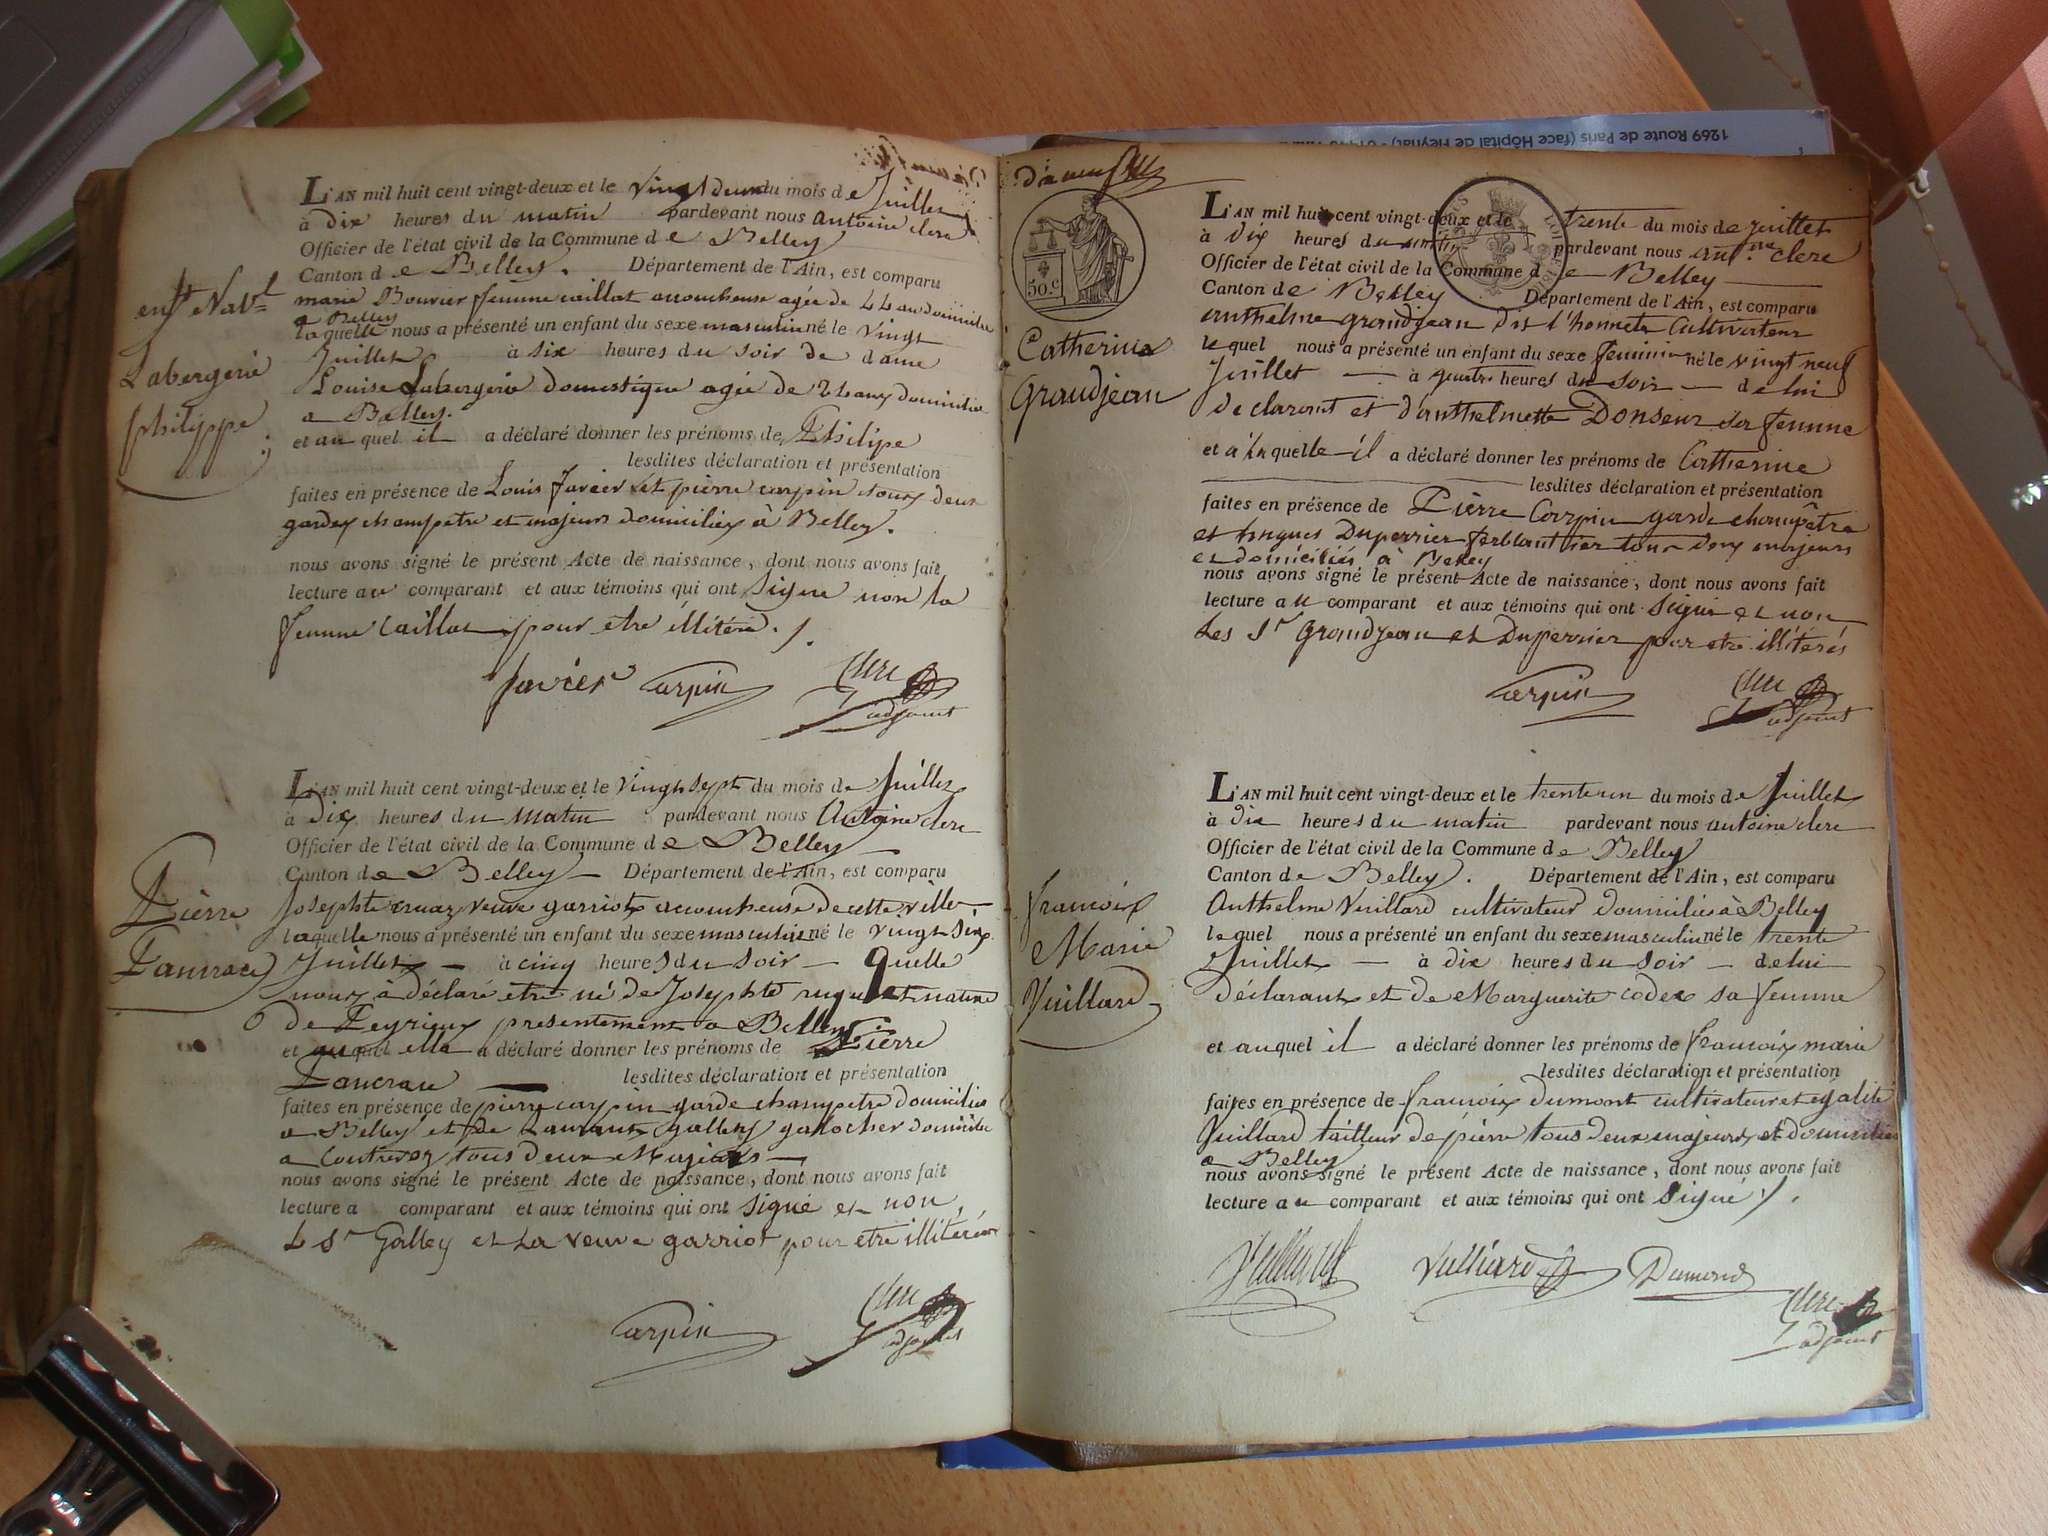 1269 Route de Paris (face Hôpital de Fleyriat)
enft Natel
Labergerie
philippe
L'AN mil huit cent vingt-deux et le vingt deux du mois de Juillet
à dix heures du matin pardevant nous antoine clerc
Officier de l'état civil de la Commune de Belley
Canton de Belley. Département de l'Ain, est comparu
marie Bouvier femme caillat accoucheuse agée de 44 an domiciliée
a Belley
laquelle nous a présenté un enfant du sexe masculin né le vingt
Juillet à six heures du soir de dame
Louise Labergerie domestique agée de ans domiciliée
a Belley.
et au quel il a déclaré donner les prénoms de Philipe
lesdites déclaration et présentation
faites en présence de Louis Javier et pierre carpin tous deux
gardes champetre et majeurs domiciliés à Belley.
nous avons signé le présent Acte de naissance, dont nous avons fait
lecture au comparant et aux témoins qui ont signé non la
femme caillat pour etre illitéré.
Javier Carpin Clerc
adjoint
Pierre
Pancrace
L'AN mil huit cent vingt-deux et le vingt sept du mois de Juillet
à Dix heures du matin pardevant nous Antoine clerc
Officier de l'état civil de la Commune de Belley
Canton de Belley Département de l'Ain, est comparu
Josephte cruaz veuve garriot accoucheuse de cette ville
laquelle nous a présenté un enfant du sexe masculin né le vingt six
Juillet à cinq heures du soir quelle
nous à déclaré etre né de Josephte native
de Peyrieux presentement a Belley
et auquel elle a déclaré donner les prénoms de Pierre
Pancrace lesdites déclaration et présentation
faites en présence de pierre carpin garde champetre domicilié
a Belley et de Laurent Galley galocher domicilié
a Contrevoz tous deux Majeurs
nous avons signé le présent Acte de naissance, dont nous avons fait
lecture a comparant et aux témoins qui ont signé et non
Le Sr Galley et La veuve garriot pour etre illitérés
Carpin Clerc
adjoint
50.c
Catherine
Grandjean
L'AN mil huit cent vingt-deux et le trente du mois de Juillet
à dix heures du matin pardevant nous antne clerc
Officier de l'état civil de la Commune de Belley
Canton de Belley Département de l'Ain, est comparu
anthelme grandjean dit l'honnete Cultivateur
lequel nous a présenté un enfant du sexe feminin né le vingt neuf
Juillet à quatre heures du soir de lui
declarant et d'anthelmette Donseur sa femme
et à laquelle il a déclaré donner les prénoms de Catherine
lesdites déclaration et présentation
faites en présence de Pierre Carpin garde champêtre
et hugues Duperrier ferblantier tous deux majeurs
et domiciliés à Belley
nous avons signé le présent Acte de naissance, dont nous avons fait
lecture au comparant et aux témoins qui ont signé et non
Les Sr Grandjean et Duperrier pour etre illitérés
Carpin Clerc
adjoint
francoix
Marie
Vuillard
L'AN mil huit cent vingt-deux et le trente un du mois de Juillet
à dix heures du matin pardevant nous antoine clerc
Officier de l'état civil de la Commune de Belley
Canton de Belley. Département de l'Ain, est comparu
Anthelme Vuillard cultivateur domicilié à Belley
lequel nous a présenté un enfant du sexe masculin né le trente
Juillet à dix heures du soir de lui
déclarant et de Marguerite codex sa femme
et auquel il a déclaré donner les prénoms de francoix marie
lesdites déclaration et présentation
faites en présence de francoix dumont cultivateur et égalité
Vuillard tailleur de pierre tous deux majeurs et domiciliés
a Belley
nous avons signé le présent Acte de naissance, dont nous avons fait
lecture au comparant et aux témoins qui ont signé
Vuilliard Dumond
Clerc
adjoint